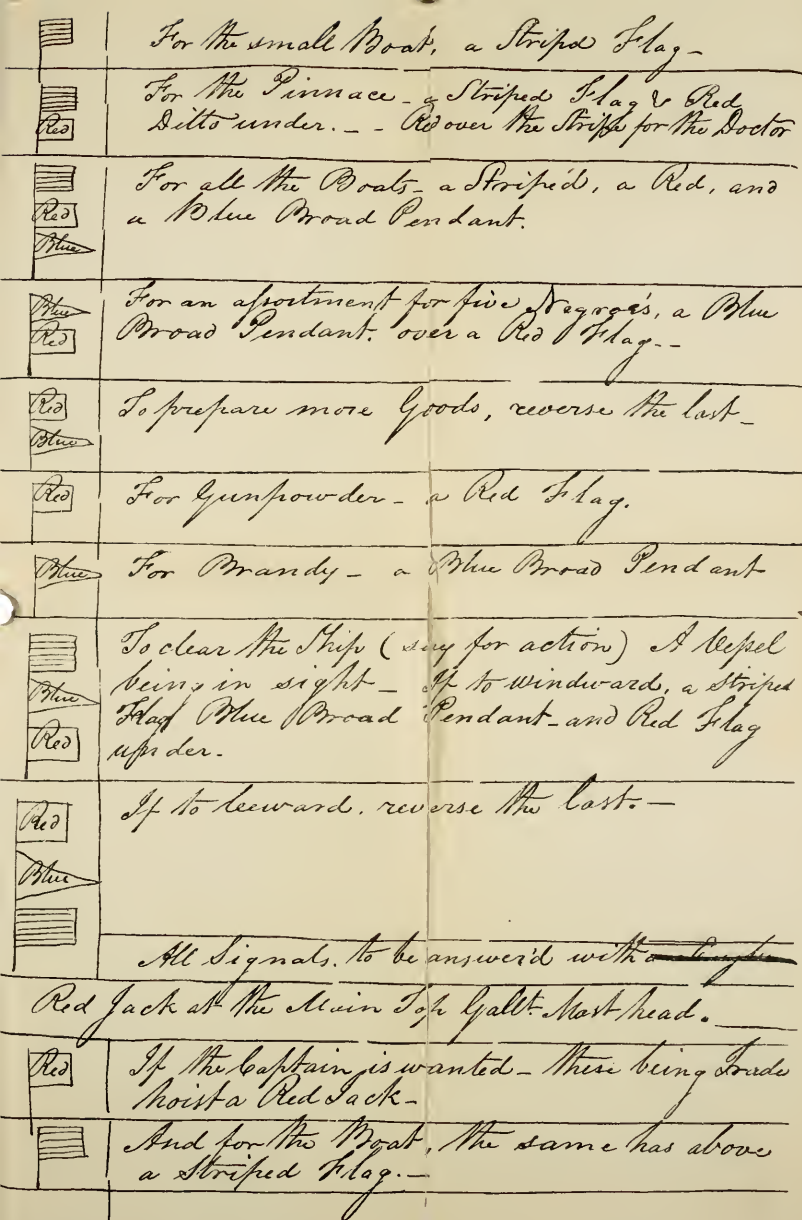 For the small Boat, a Stripd Flag_
For the Pinnace _ a Striped Flag & Red
Red Ditto under. _ _ Red over the Stripe for the Doctor
For all the Boats_ a Striped, a Red, and
Red a Blue Broad Pendant.
Blue
Blue For an assortment for five Negroe's, a Blue
Red Broad Pendant. over a Red Flag._ _
Red To prepare more Goods, reverse the last_
Blue
Red For Gunpowder _ a Red Flag.
Blue For Brandy _ a Blue Broad Pendant
To clear the Ship ( say for action) A Vessel
Blue being in sight _ If to windward, a striped
Red Flag Blue Broad Pendant_ and Red Flag
under.
Red If to leeward. reverse the last. _
Blue
All Signals. to be answer'd with
Red Jack at the Main Top Gallt. Mast head.
Red If the Captain is wanted _ these being Trade
hoist a Red Jack _
And for the Boat, the same has above
a Striped Flag. _